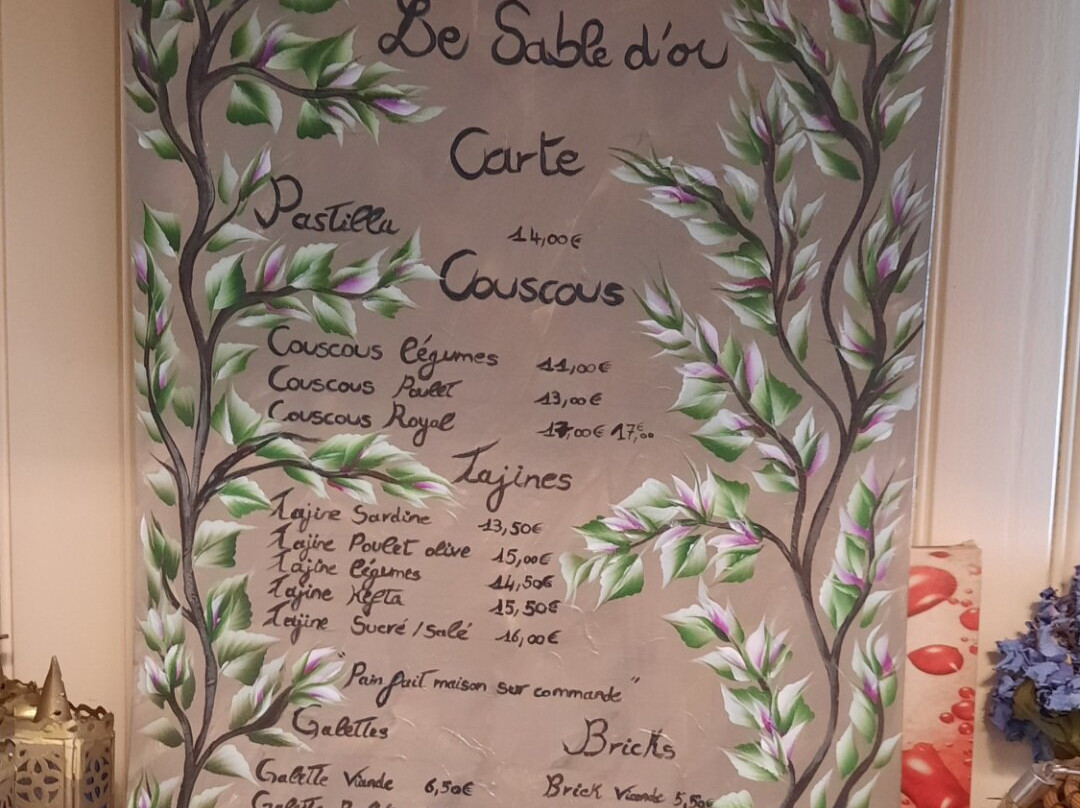 Le Sable d'or
Carte
Pastilla 14,00€
Couscous
Couscous légumes 11,00€
Couscous Poulet 13,00€
Couscous Royal 17,00€ 17,€00
Tajines
Tajine Sardine 13,50€
Tajine Poulet olive 15,00€
Tajine légumes 14,50€
Tajine Kefta 15,50€
Tajine Sucré/Salé 16,00€
"Pain fait maison sur commande"
Galettes Bricks
Galette Viande 6,50€ Brick Viande 5,50€
Galette